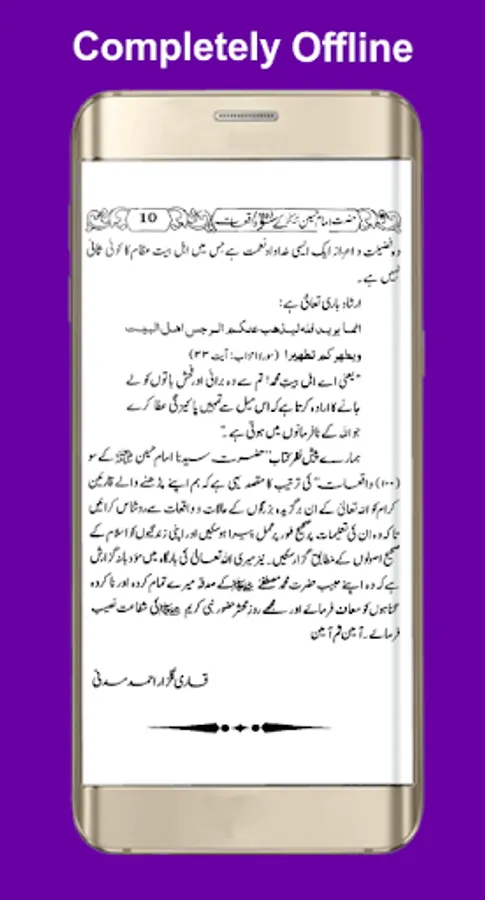 Completely Offline
10 حضرت امام حسین کے سو واقعات
وہ فضیلت و اعزاز ایک ایسی خداداد نعمت ہے جس میں اہل بیت مقام کا کوئی ثانی
نہیں ہے۔
ارشاد باری تعالیٰ ہے:
انما یرید اللہ لیذھب عنکم الرجس اھل البیت
ویطھرکم تطھیرا (سورۃ احزاب: آیت ۳۳)
"یعنی اے اہل بیت محمد! تم سے وہ برائی اور فحش باتوں کو لے
جانے کا ارادہ کرتا ہے کہ اس میل سے تمہیں پاکیزگی عطا کرے
جو اللہ کے نافرمانوں میں ہوتی ہے۔"
ہمارے پیش نظر کتاب "حضرت سیدنا امام حسین کے سو
(۱۰۰) واقعات" کی ترتیب کا مقصد یہی ہے کہ ہم اپنے پڑھنے والے قارئین
کرام کو اللہ تعالیٰ کے ان برگزیدہ بزرگوں کے حالات و واقعات سے روشناس کرائیں
تاکہ وہ ان کی تعلیمات پر صحیح طور پر عمل پیرا ہوسکیں اور اپنی زندگیوں کو اسلام کے
صحیح اصولوں کے مطابق گزار سکیں۔ نیز میری اللہ تعالیٰ کی بارگاہ میں مؤدبانہ گزارش
ہے کہ وہ اپنے حبیب حضرت محمد مصطفیٰ ﷺ کے صدقہ میرے تمام کردہ اور ناکردہ
گناہوں کو معاف فرمائے اور مجھے روز محشر حضور نبی کریم ﷺ کی شفاعت نصیب
فرمائے۔ آمین ثم آمین
قاری گلزار احمد مدنی